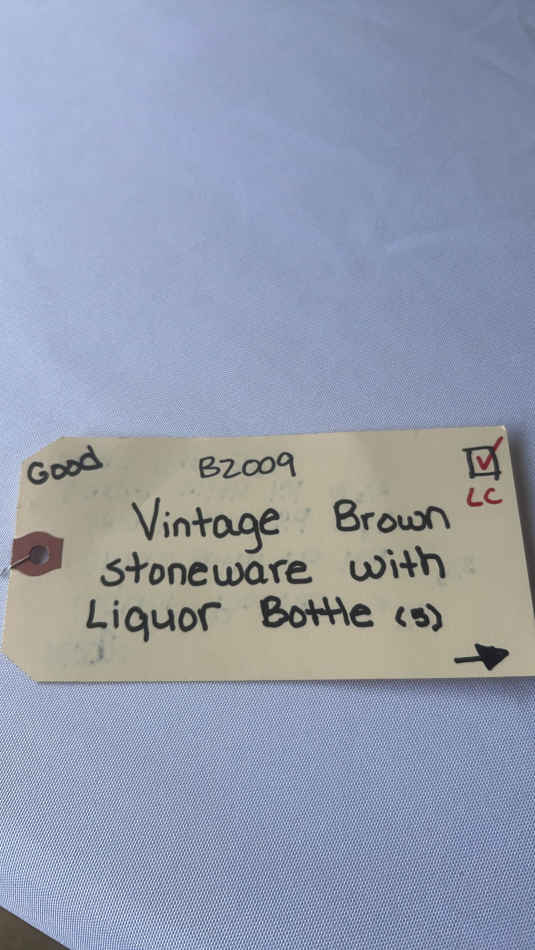 Good
B2009
LC
Vintage Brown
stoneware with
Liquor Bottle (5)